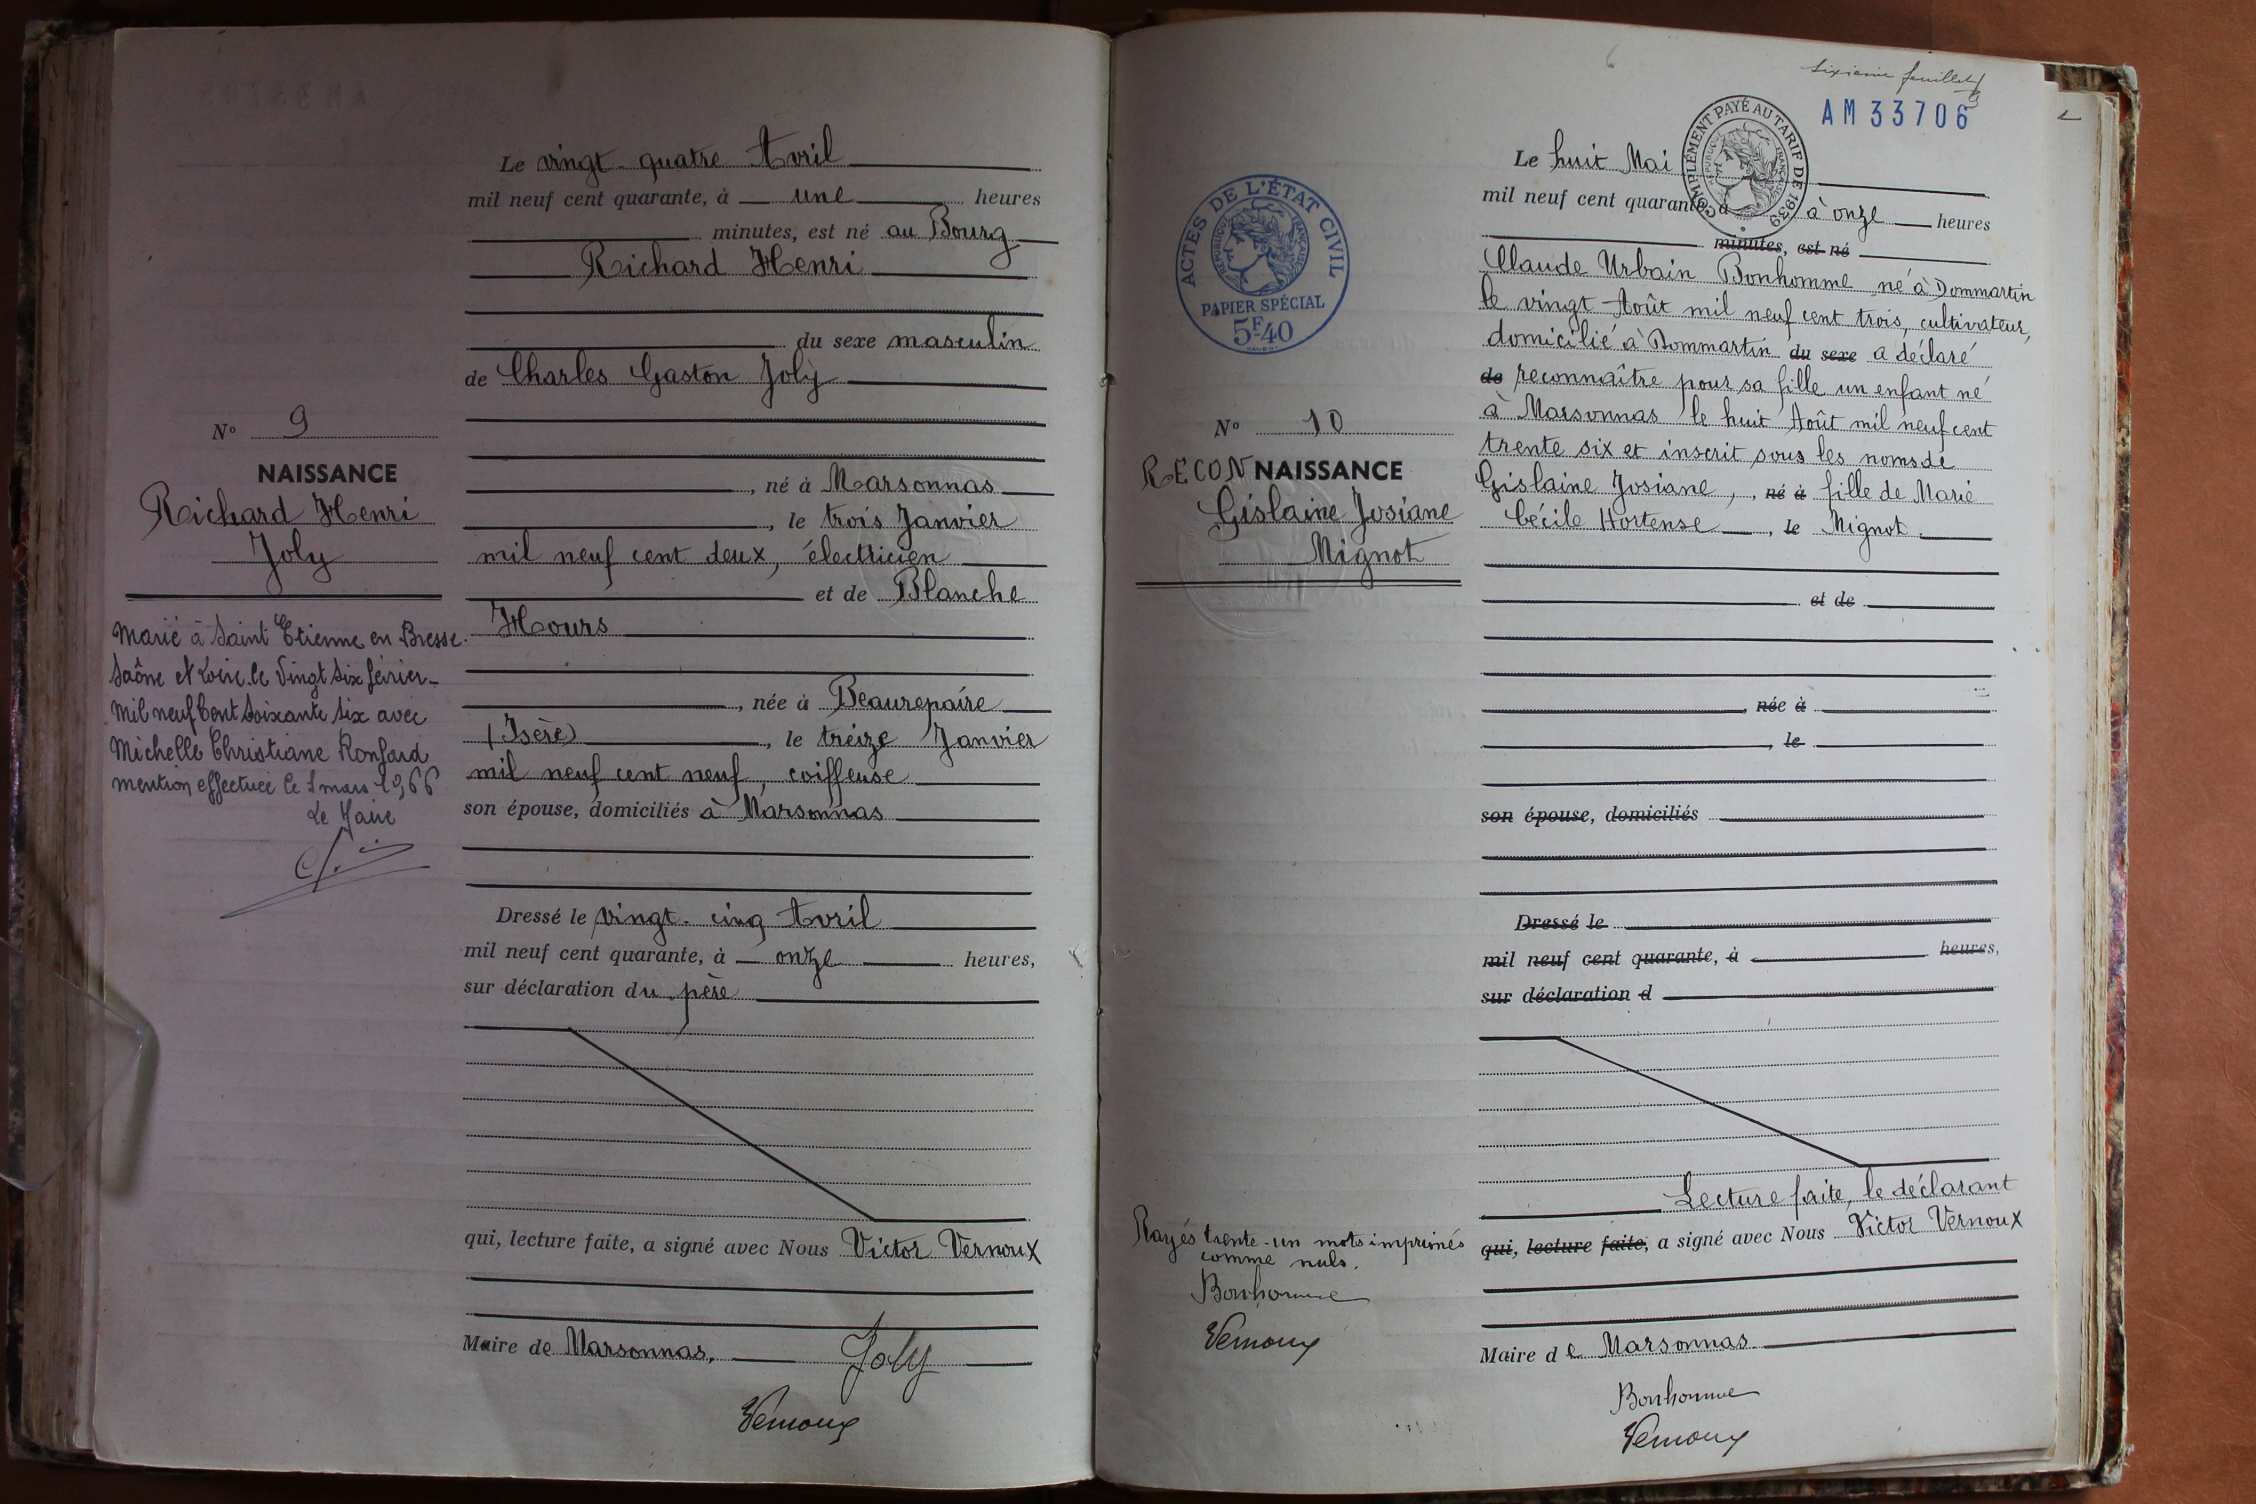 Le vingt-quatre Avril
mil neuf cent quarante, à une heures
minutes, est né au Bourg
Richard Henri
du sexe masculin
de Charles Gaston Joly
né à Marsonnas
, le trois Janvier
mil neuf cent deux, électricien
et de Blanche
Hours
, née à Beaurepaire
(Isère) , le treize Janvier
mil neuf cent neuf, coiffeuse
son épouse, domiciliés à Marsonnas
Dressé le vingt-cinq Avril
mil neuf cent quarante, à onze heures,
sur déclaration du père
qui, lecture faite, a signé avec Nous Victor Vernoux
Maire de Marsonnas,
Joly
Vernoux
N° 9
NAISSANCE
Richard Henri
Joly
Marié à Saint Etienne en Bresse
Saône et Loire le Vingt Six février
Mil neuf Cent Soixante Six avec
Michelle Christiane Ronfard
mention effectuée le 1 mars 1966
Le Maire
sixième feuillet
AM33706
COMPLÉMENT PAYÉ AU TARIF DE 1939
RÉPUBLIQUE FRANÇAISE
Le huit Mai
mil neuf cent quarante, à à onze heures
minutes, est né
Claude Urbain Bonhomme né à Dommartin
le vingt Août mil neuf cent trois, cultivateur,
domicilié à Dommartin du sexe a déclaré
de reconnaître pour sa fille un enfant né
à Marsonnas le huit Août mil neuf cent
trente six et inscrit sous les noms de
Gislaine Josiane, , né à fille de Marie
Cécile Hortense , le Mignot.
et de
, née à
, le
son épouse, domiciliés
Dressé le
mil neuf cent quarante, à heures,
sur déclaration d
Lecture faite, le déclarant
qui, lecture faite, a signé avec Nous Victor Vernoux
Maire de Marsonnas
Bonhomme
Vernoux
ACTES DE L'ÉTAT CIVIL
RÉPUBLIQUE FRANÇAISE
PAPIER SPÉCIAL
5F40
N° 10
RECONNAISSANCE
Gislaine Josiane
Mignot
Rayés trente-un mots imprimés
comme nuls.
Bonhomme
Vernoux